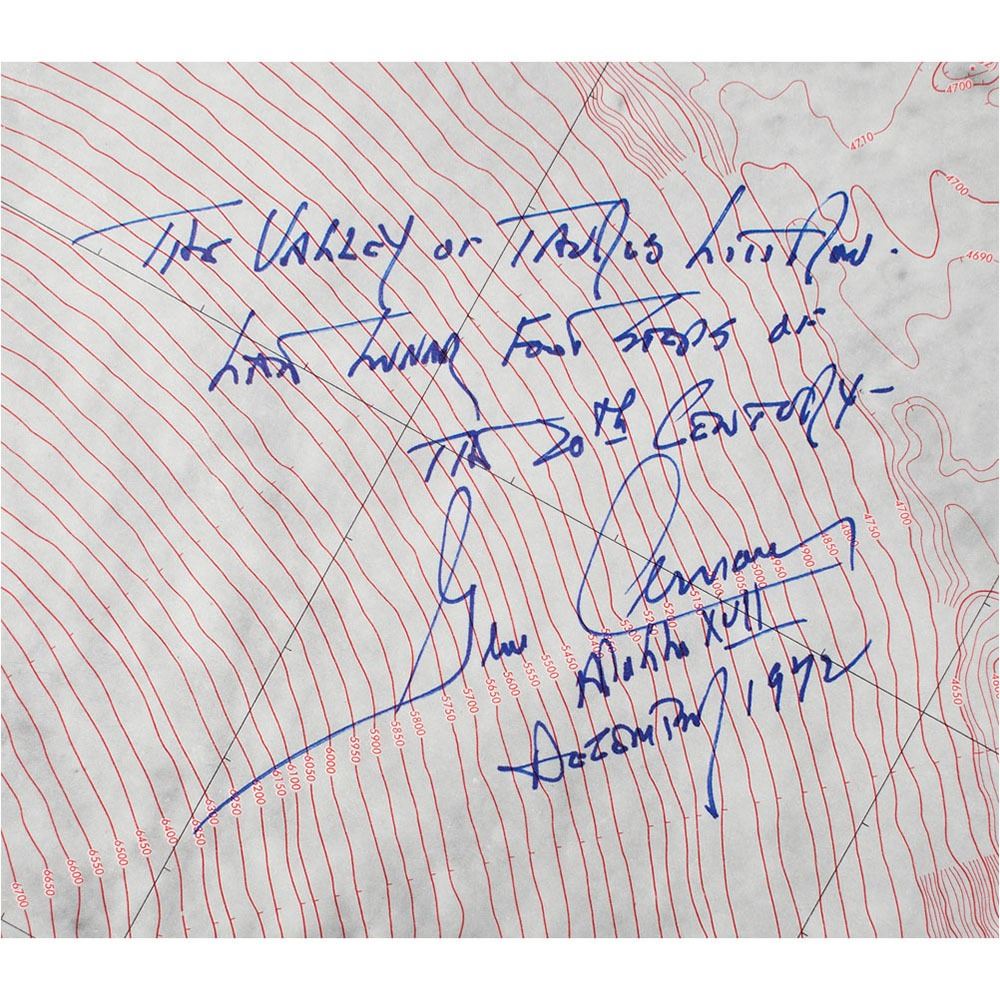 4700
4710
4700
4690
THE VALLEY OF TAURUS LITTROW.
LAST LUNAR FOOT STEPS OF
THE 20TH CENTURY-
Gene Cernan
Apollo XVII
DECEMBER 1972
4700
4750
4800
4850
4900
4950
5000
5050
5150
5200
5250
5300
5450
5500
5550
5600
5650
5700
5750
5800
5850
5900
5950
6000
6050
6100
6150
6200
6250
6300
6350
6400
6450
6500
6550
6600
6650
6700
4650